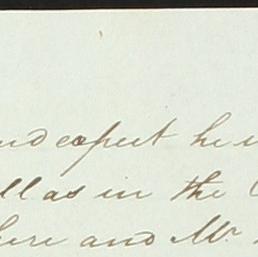 and expect he
ll as in the
here and Mr